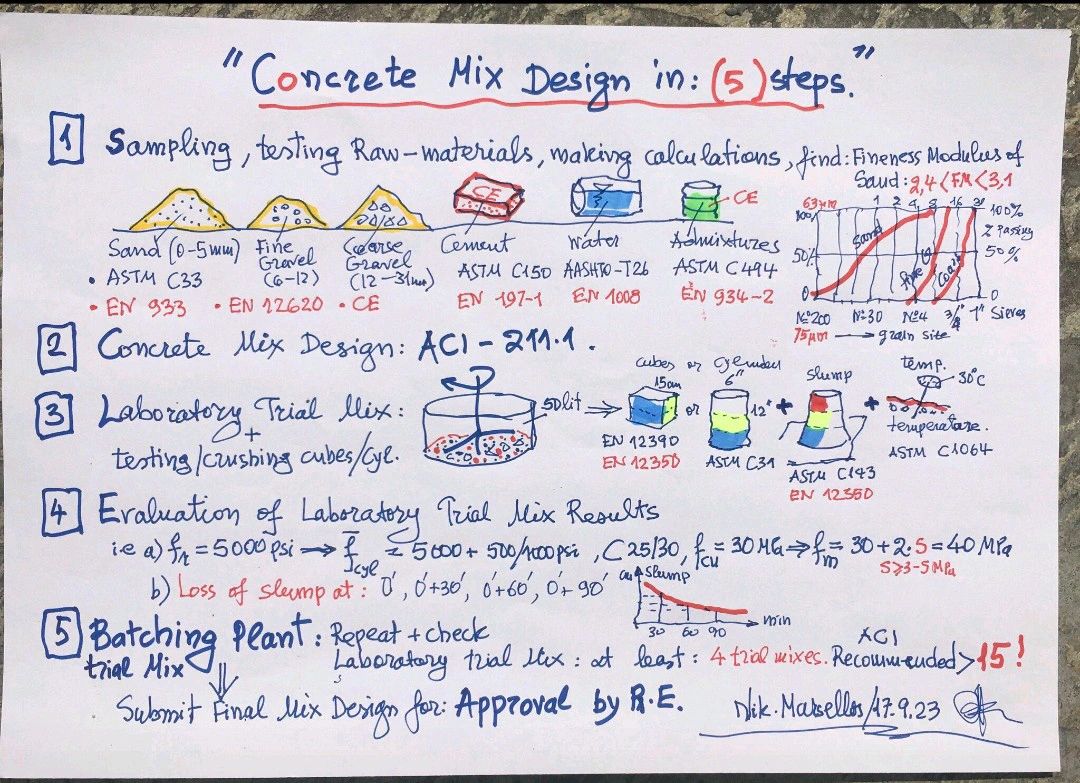 "Concrete Mix Design in: (5) steps."
1 Sampling, testing Raw-materials, making calculations, find: Fineness Modulus of
Sand: 2,4 < FM < 3,1
CE
CE
Sand (0-5mm)
• ASTM C33
• EN 933
Fine
Gravel
(6-12)
• EN 12620
Coarse
Gravel
(12-31mm)
• CE
Cement
ASTM C150
EN 197-1
Water
AASHTO-T26
EN 1008
Admixtures
ASTM C494
EN 934-2
63µm 1 2 4 8 16
100% 100%
% Passing
50% 50%
0 0
Sand
Fine G
Coarse
Nº200 Nº30 Nº4 3/8 1" Sieves
75µm → grain site
2 Concrete Mix Design: ACI-211.1.
3 Laboratory Trial Mix:
+
testing/crushing cubes/cyl.
50lit ⇒
cubes or cylinder
15cm
or
6"
12"
+
slump
+
temp.
30°C
temperature.
EN 12390
EN 12350
ASTM C31
ASTM C143
EN 12350
ASTM C1064
4 Evaluation of Laboratory Trial Mix Results
i.e a) fr = 5000psi → fcyl = 5000 + 500/700psi, C25/30, fcu = 30MPa ⇒ fm = 30 + 2.S = 40 MPa
S≥3-5MPa
b) Loss of slump at: 0', 0'+30', 0'+60', 0'+90'
cm slump
30 60 90 min
5 Batching Plant: Repeat + check
trial Mix
Laboratory trial Mix: at least: 4 trial mixes. Recommended > 15!
ACI
Submit Final Mix Design for: Approval by R.E.
Nik. Marsellos/17.9.23